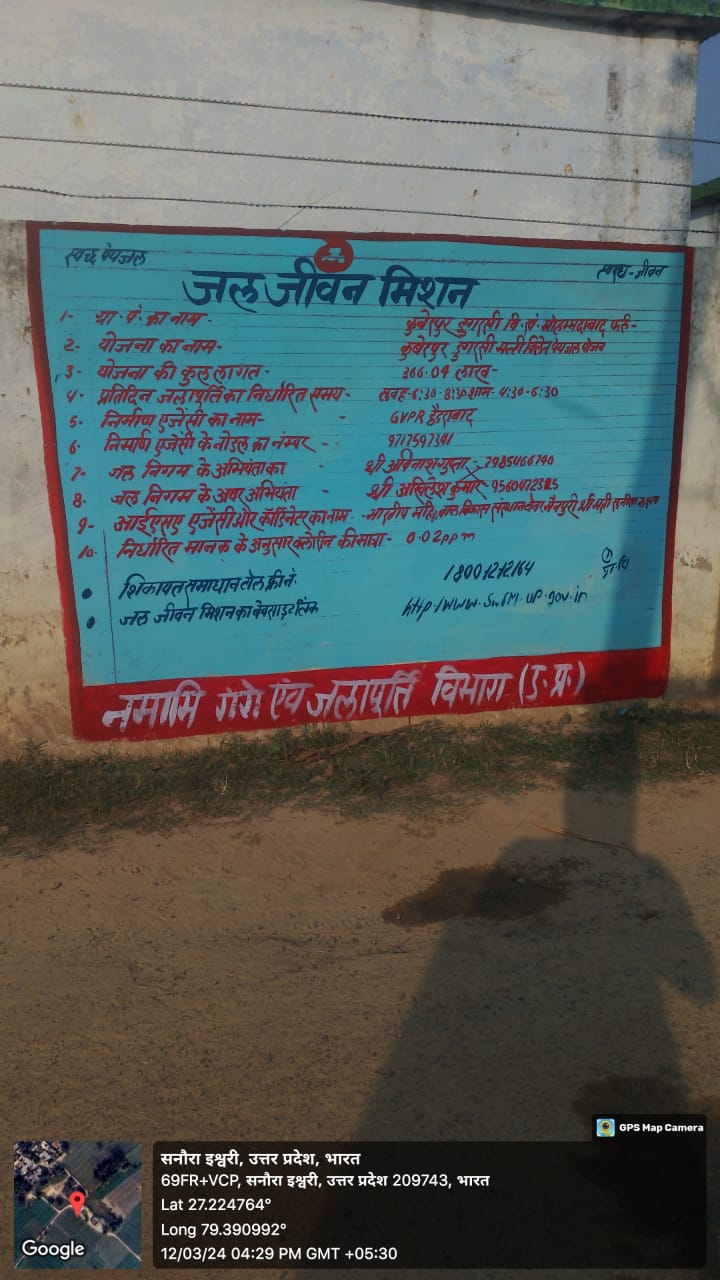 स्वच्छ पेयजल
स्वस्थ-जीवन
जल जीवन मिशन
1- ग्रा. पं. का नाम- कुबेरपुर डुगरसी वि. खं. मोहम्मदाबाद फर्रु-
2. योजना का नाम- कुबेरपुर डुगरसी मल्टी विलेज पेयजल योजना
3- योजना की कुल लागत- 366.04 लाख-
4- प्रतिदिन जलापूर्ति का निर्धारित समय- सुबह-6:30-8:30 शाम- 4:30-6:30
5- निर्माण एजेंसी का नाम- - GVPR हैदराबाद
6- निर्माण एजेंसी के नोडल का नम्बर -
7- जल निगम के अभियंता का - श्री अविनाश गुप्ता- 7985466740
8- जल निगम के अवर अभियंता - श्री अखिलेश कुमार-
9- आईएसए एजेंसी और कॉर्डिनेटर का नाम- महिला बाल विकास संस्थान मैनपुरी श्रीमती
10- निर्धारित मानक के अनुसार क्लोरीन की मात्रा- 0.02ppm
• शिकायत समाधान टोल फ्री नं. 18001212164
• जल जीवन मिशन का बेवसाइट लिंक http/www.swsm.up.gov.in
नमामि गंगे एंव जलापूर्ति विभाग (उ.प्र.)
GPS Map Camera
Google
सनौरा इश्वरी, उत्तर प्रदेश, भारत
69FR+VCP, सनौरा इश्वरी, उत्तर प्रदेश 209743, भारत
Lat 27.224764°
Long 79.390992°
12/03/24 04:29 PM GMT +05:30